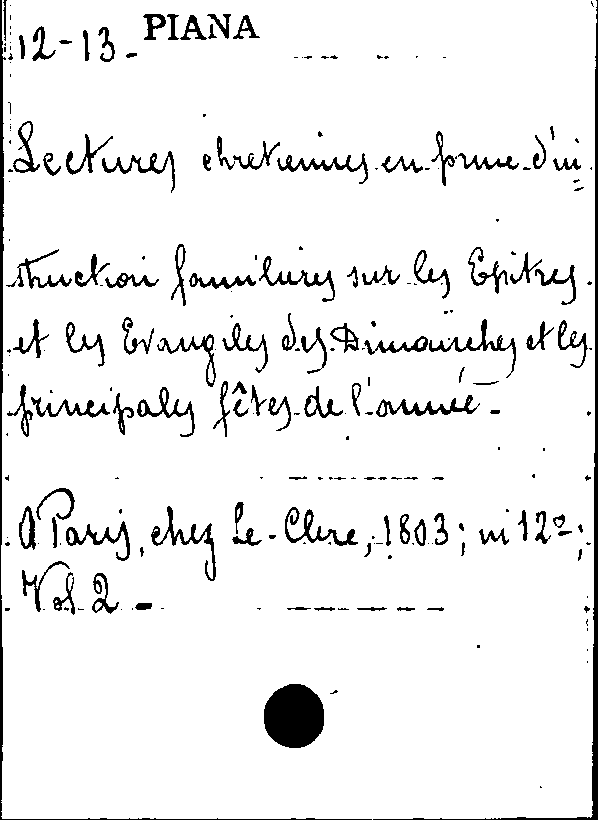 12-13- PIANA
Lectures chretiennes en forme d'in=
struction familieres sur les Epitres
et les Evangiles des Dimanches et les
principales fêtes de l'année-
A Paris, chez Le-Clere, 1803; in 12º;
Vol. 2 -